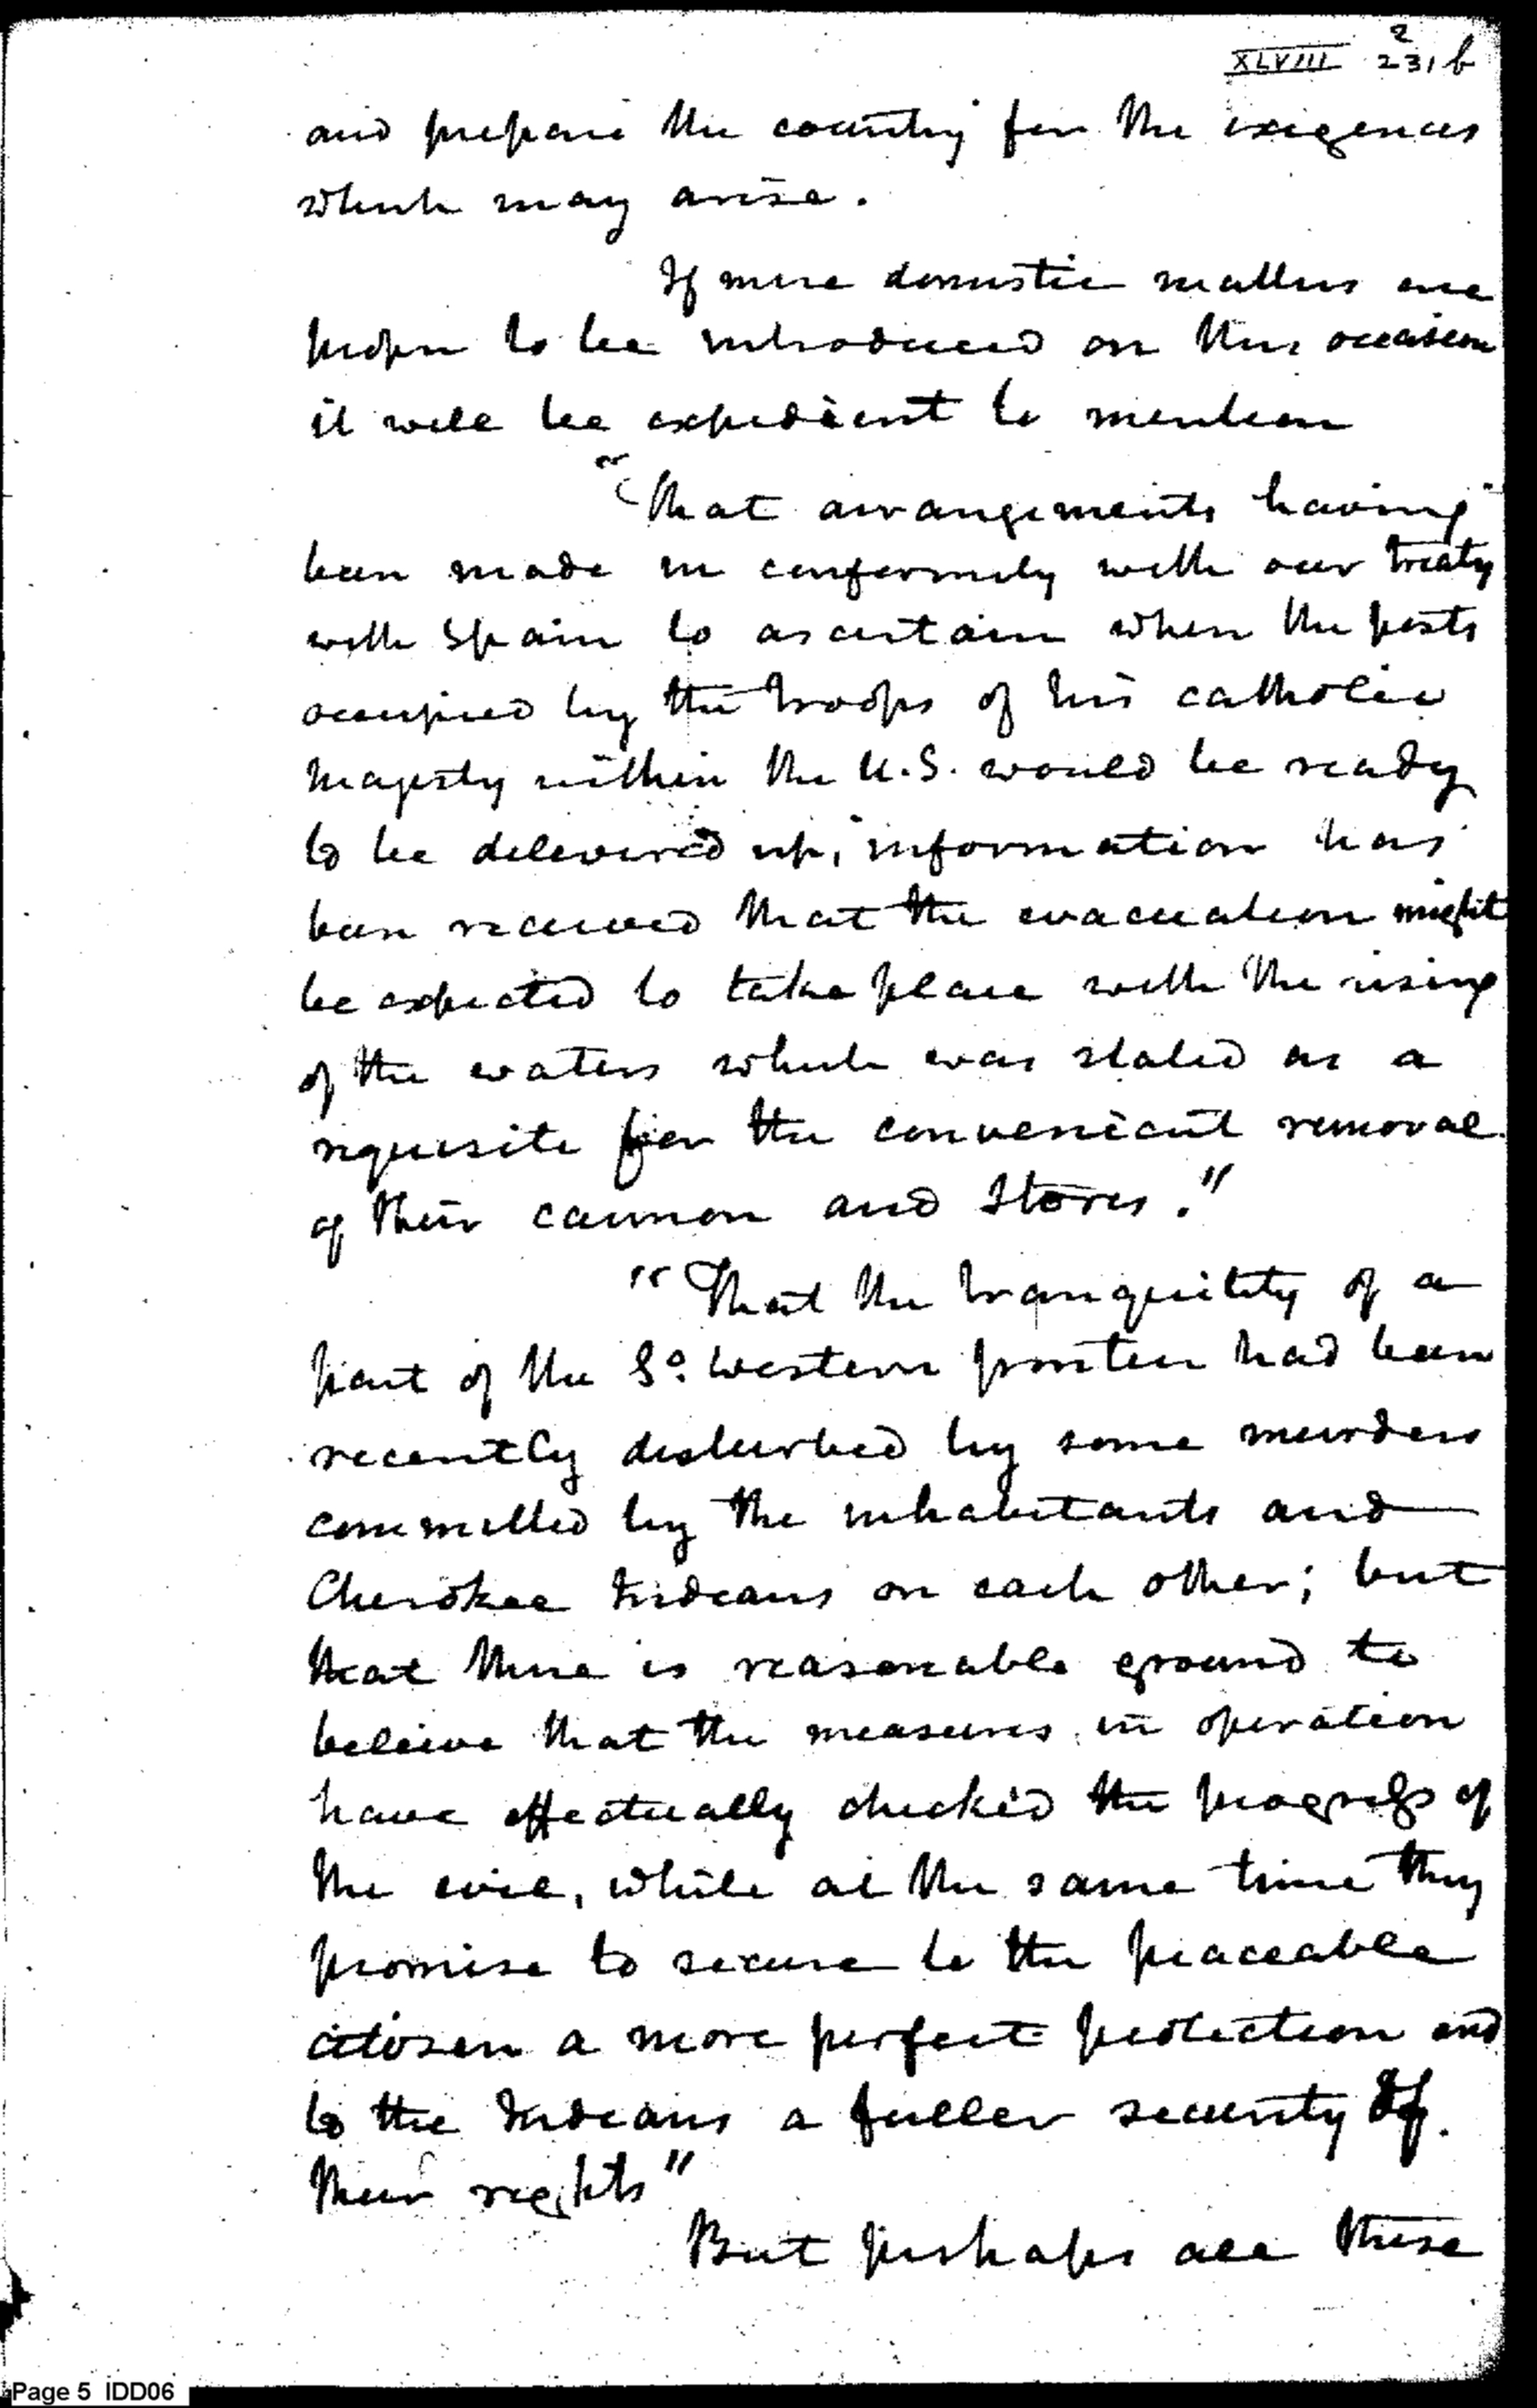 2
XLVIII 231 b
and prepare the country for the exigences
which may arise.
If mere domestic matters are
proper to be introduced on this occasion
it will be expedient to mention
"That arrangements having
been made in conformity with our treaty
with Spain to ascertain when the posts
occupied by the troops of his catholic
Majesty within the U.S. would be ready
to be delivered up, information has
been received that the evacuation might
be expected to take place with the rising
of the waters which was stated as a
requisite for the convenient removal
of their cannon and stores."
"That the tranquility of a
part of the So. Western frontier had been
recently disturbed by some murders
committed by the inhabitants and
Cherokee Indians on each other; but
that there is reasonable ground to
believe that the measures in operation
have effectually checked the progress of
the evil, while at the same time they
promise to secure to the peaceable
citizen a more perfect protection and
to the Indians a fuller security of
their rights"
But perhaps all these
Page 5 IDD06